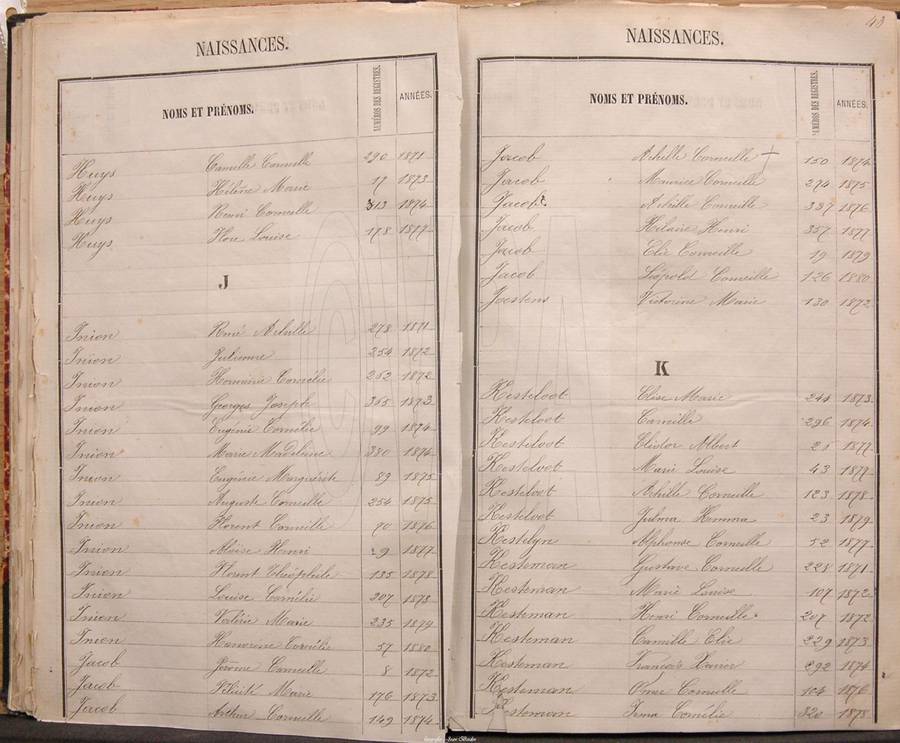 NAISSANCES.
NOMS ET PRÉNOMS. NUMÉROS DES REGISTRES. ANNÉES.
Huys Camille Corneille 290 1871
Huys Hélène Marie 17 1873
Huys René Corneille 313 1874
Huys Flore Louise 178 1877
J
Inion René Achille 278 1871
Inion Julienne 254 1872
Inion Cornélie 262 1872
Inion Georges Joseph 365 1873
Inion Eugénie Cornélie 99 1874
Inion Marie Madeleine 330 1874
Inion Eugénie Marguerite 89 1875
Inion Auguste Corneille 254 1875
Inion Florent Corneille 70 1876
Inion Aloïse Henri 29 1877
Inion Florent Théophile 135 1878
Inion Louise Cornélie 207 1878
Inion Valérie Marie 235 1879
Inion Honorine Cornélie 57 1880
Jacob Jérôme Corneille 8 1872
Jacob Félicité Marie 176 1873
Jacob Arthur Corneille 149 1874
NAISSANCES.
NOMS ET PRÉNOMS. NUMÉROS DES REGISTRES. ANNÉES.
Jacob Achille Corneille 150 1874
Jacob Maurice Corneille 274 1875
Jacob Achille Corneille 337 1876
Jacob Hilaire Henri 357 1877
Jacob Elie Corneille 19 1879
Jacob Léopold Corneille 126 1880
Joestens Victorine Marie 130 1872
K
Kesteloot Elise Marie 244 1873
Kesteloot Camille 296 1874
Kesteloot Albert 21 1877
Kesteloot Marie Louise 43 1877
Kesteloot Achille Corneille 123 1878
Kesteloot Julma Emma 23 1879
Kestelyn Alphonse Corneille 52 1877
Kesteman Gustave Corneille 228 1871
Kesteman Marie Louise 107 1872
Kesteman Henri Corneille 207 1872
Kesteman Camille Elie 229 1873
Kesteman François Xavier 292 1874
Kesteman Omer Corneille 104 1876
Kesteman Irma Cornélie 320 1878